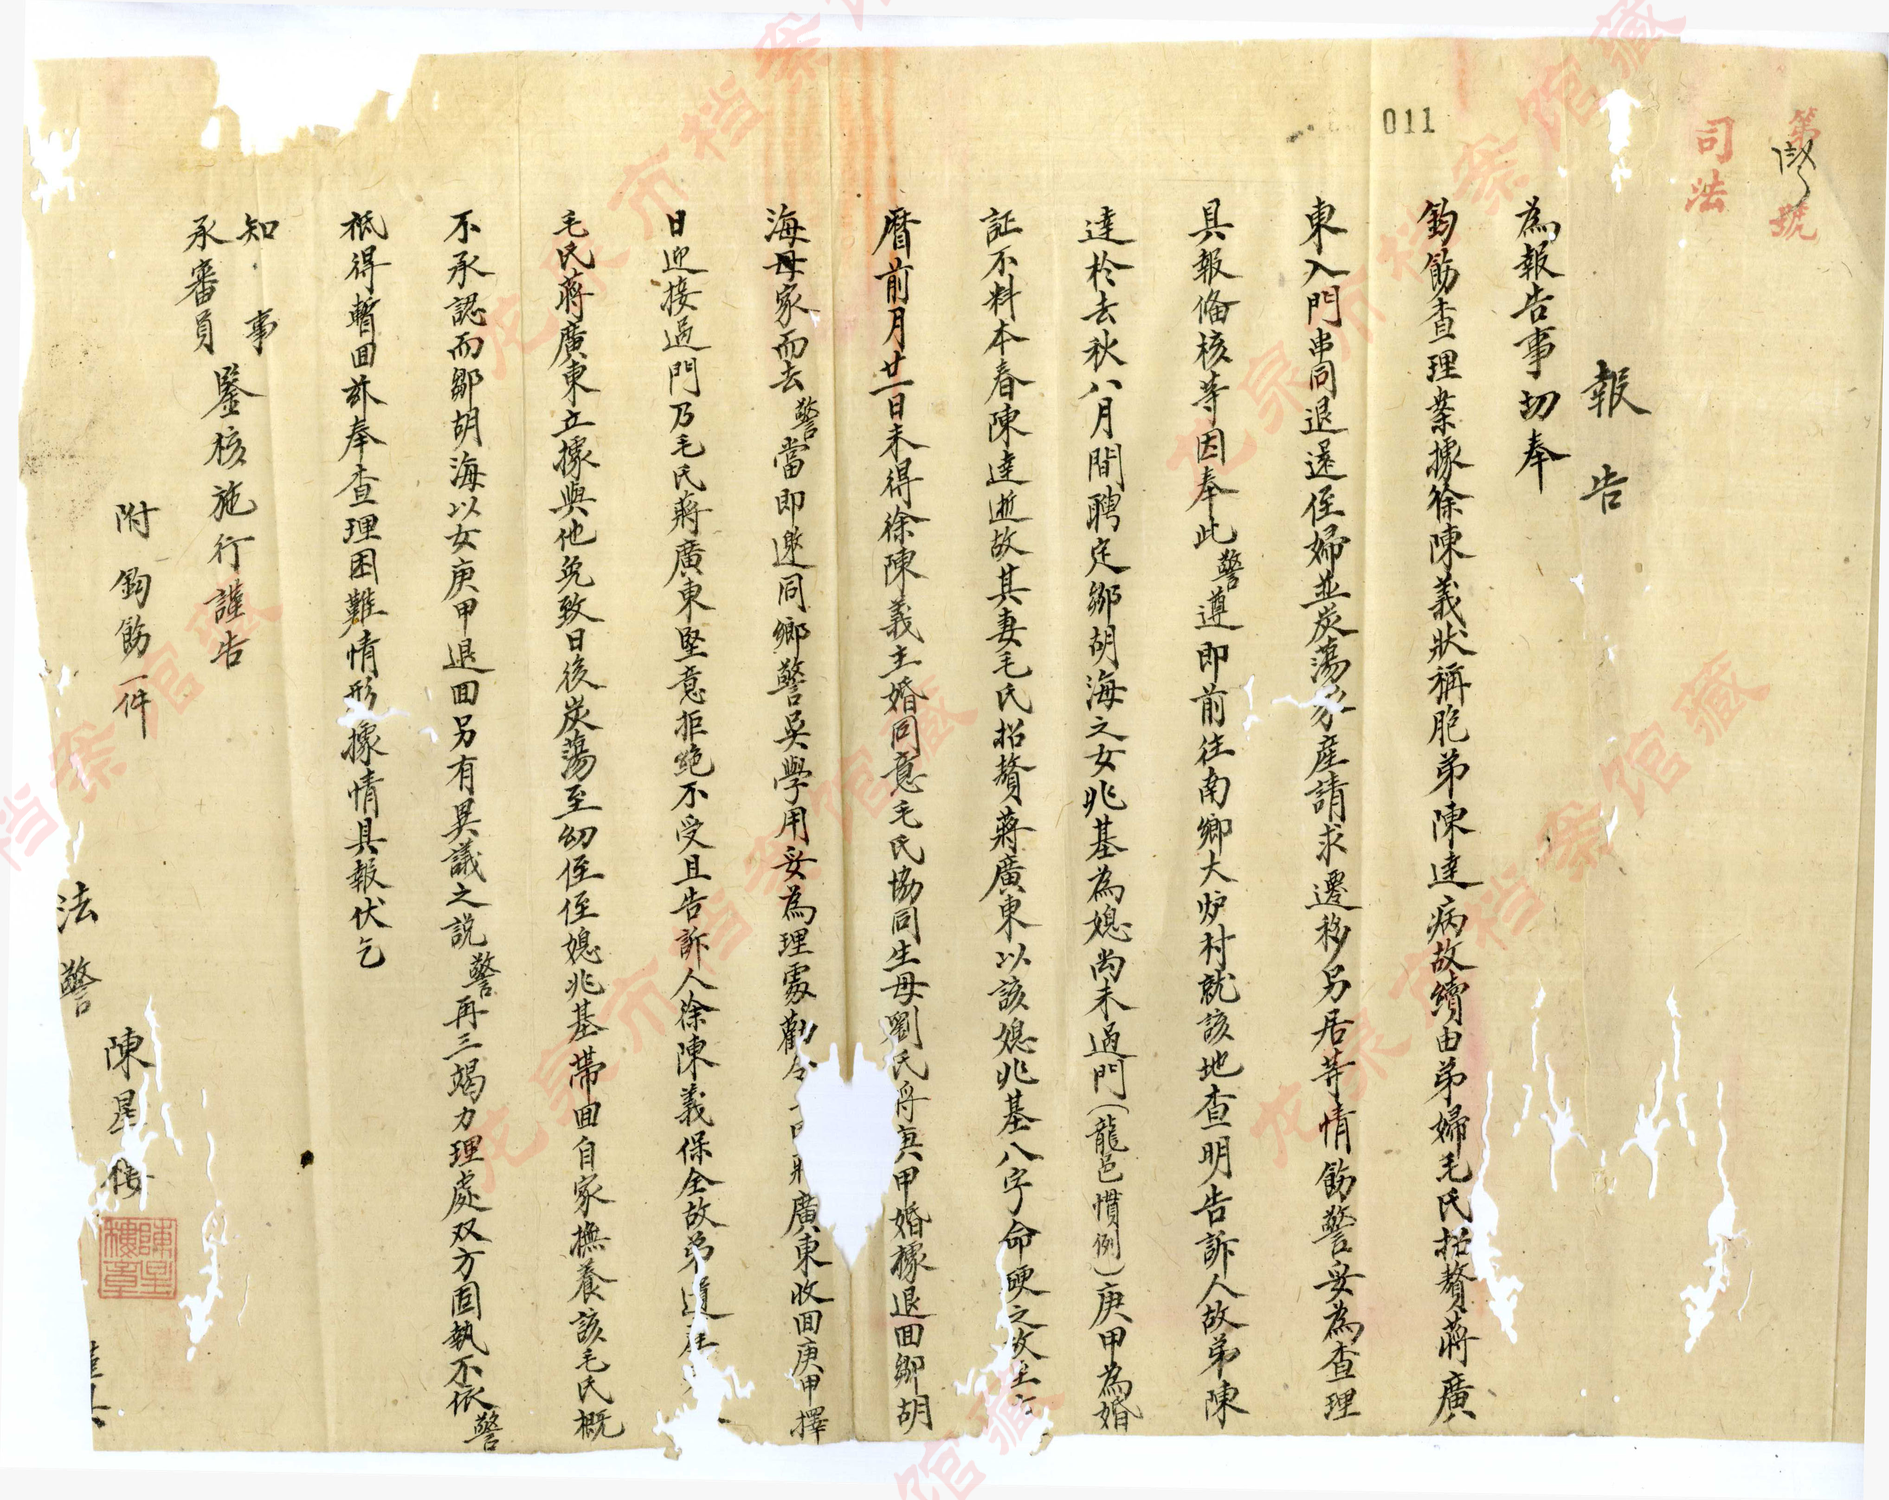 第號
司法
011
報告
為報告事切奉
鈞飭查理業據徐陳義狀稱胞弟陳達病故續由弟婦毛氏招贅蔣廣
東入門串同退還侄婦並炭蕩家產請求遷移另居等情飭警妥為查理
具報俻核等因奉此警遵即前往南鄉大炉村就該地查明告訴人故弟陳
達於去秋八月間聘定鄒胡海之女兆基為媳尚未過門(龍邑慣例)庚甲為婚
証不料本春陳達逝故其妻毛氏招贅蔣廣東以該媳兆基八字命硬之故
曆前月廿一日未得徐陳義主婚同意毛氏協同生母劉氏将庚甲婚據退回鄒胡
海母家而去警當即邀同鄉警吳學用妥為理處勸令廣東收回庚甲擇
日迎接過門乃毛氏蔣廣東堅意拒絶不受且告訴人徐陳義保全故弟遺產
毛氏蔣廣東立據與他免致日後炭蕩至幼侄侄媳兆基帶回自家撫養該毛氏概
不承認而鄒胡海以女庚甲退回另有異議之説警再三竭力理處双方固執不依警
祗得暫回兹奉查理困難情形據情具報伏乞
知事
承審員
鑒核施行謹告
附鈞飭一件
法警
陳星楼
陳星樓章